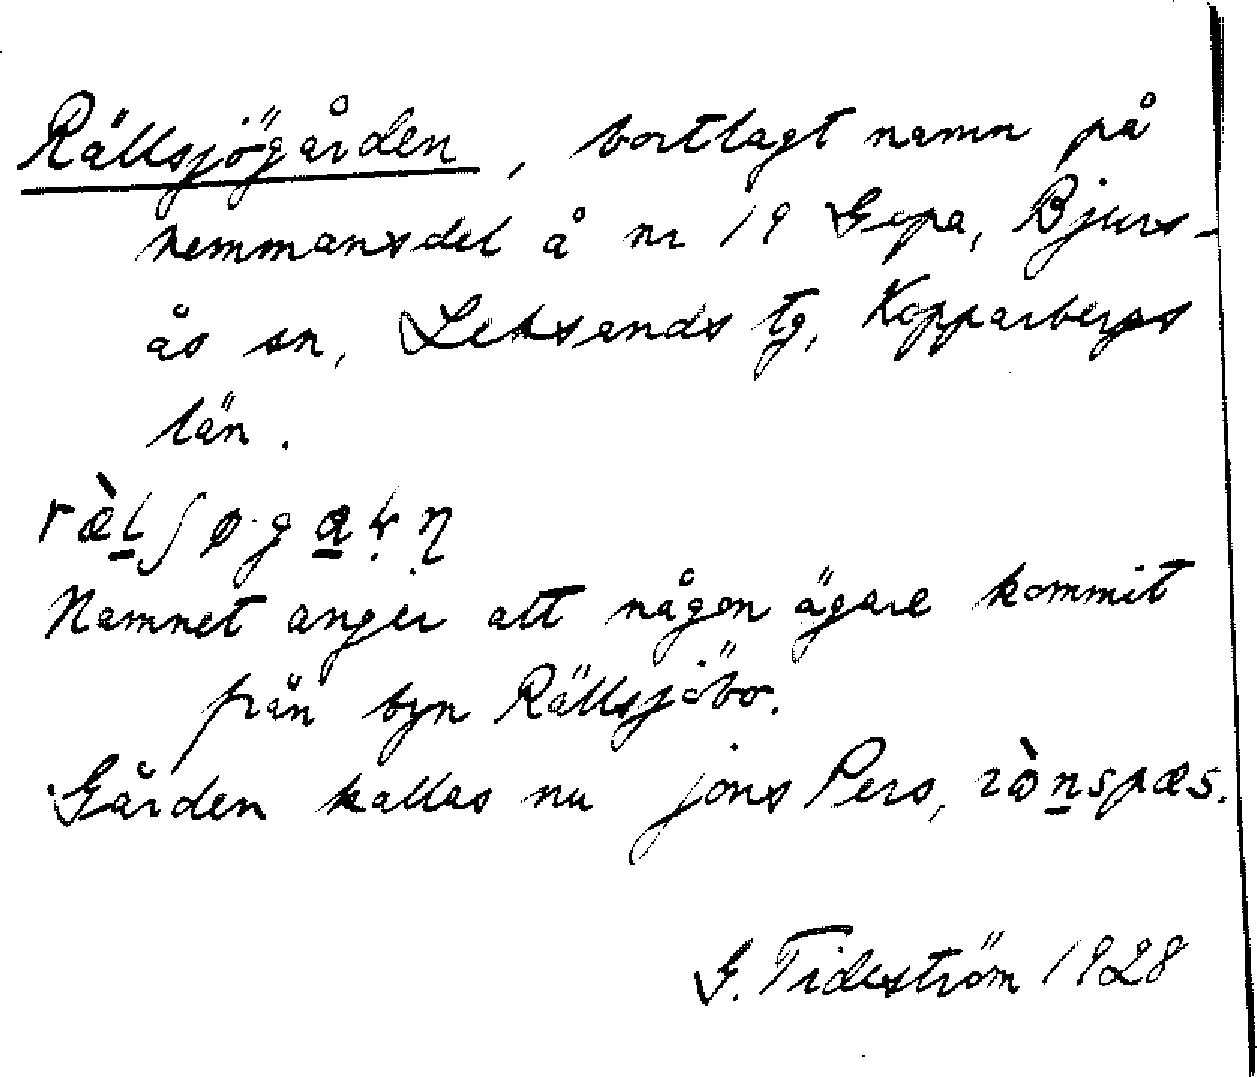 Rällsjögården, bortlagt namn på
hemmansdel å nr 19 Gopa, Bjurs-
ås sn, Leksands tg, Kopparbergs
län.
ræ̀l̲ʃøga̲ṛṇ
Namnet anger att någon ägare kommit
från byn Rällsjöbo.
Gården kallas nu jöns Pers, 
G. Tideström 1928